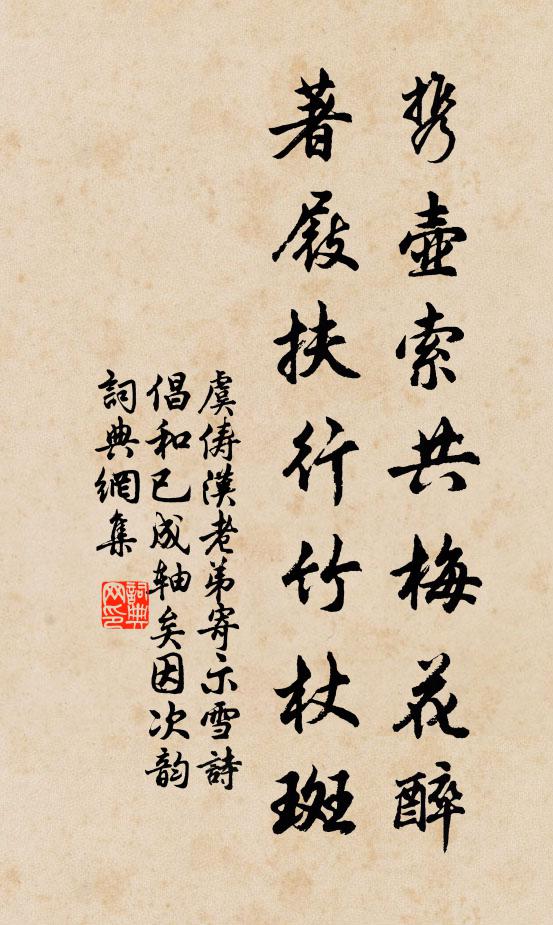 携壺索共梅花醉
著屐扶行竹杖斑
虞儔漢老弟寄示雪詩
倡和已成軸矣因次韵
詞典網集
詞典
网印